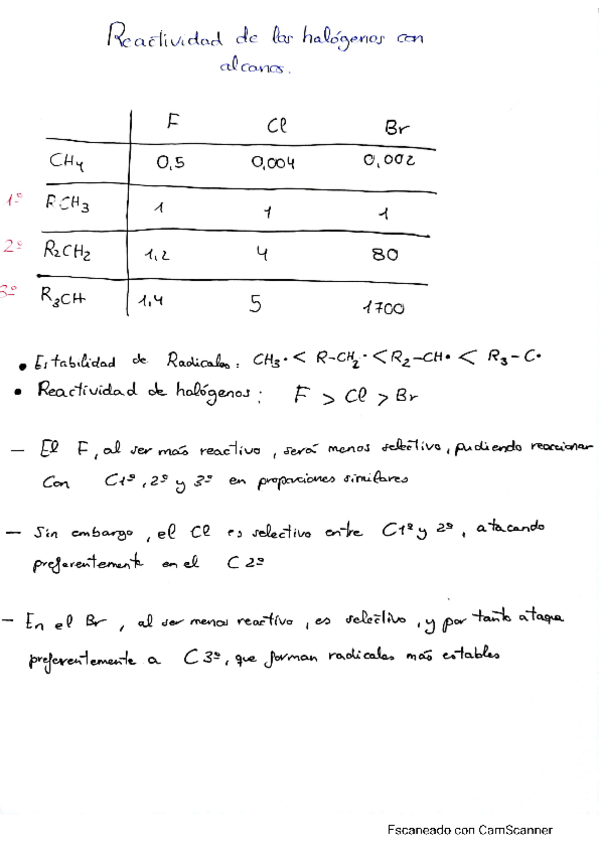 Reactividad de los halógenos con
alcanos.
F Cl Br
CH4 0,5 0,004 0,002
1º RCH3 1 1 1
2º R2CH2 1,2 4 80
3º R3CH 1,4 5 1700
• Estabilidad de Radicales: CH3· < R-CH2· < R2-CH· < R3-C·
• Reactividad de halógenos: F > Cl > Br
- El F, al ser más reactivo, será menos selectivo, pudiendo reaccionar
con C1º, 2º y 3º en proporciones similares
- Sin embargo, el Cl es selectivo entre C1º y 2º, atacando
preferentemente en el C 2º
- En el Br, al ser menos reactivo, es selectivo, y por tanto ataque
preferentemente a C3º, que forman radicales más estables
Escaneado con CamScanner